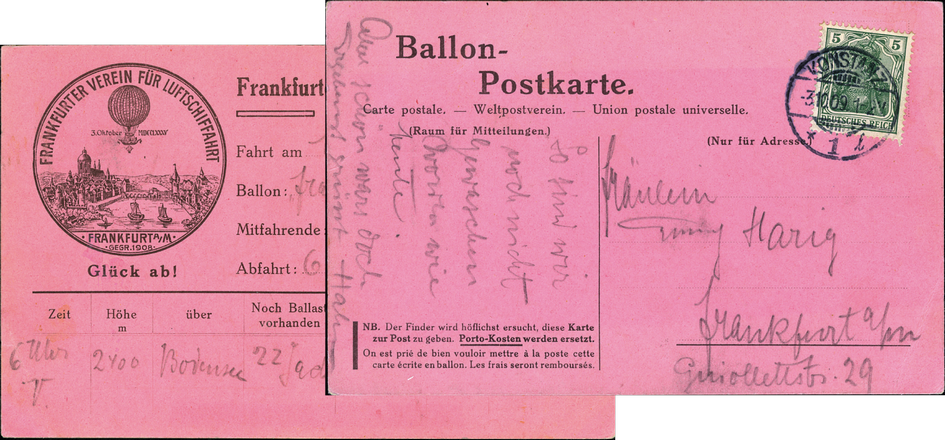 FRANKFURTER VEREIN FÜR LUFTSCHIFFAHRT
3. Oktober
FRANKFURT A/M
GEGR. 1908
Glück ab!
Frankfurt
Fahrt am
Ballon:
Mitfahrende:
Abfahrt: 6
Zeit
Höhe
m
über
Noch Ballast
vorhanden
6 Uhr
V.
2400
Bodensee
22
Ballon-
Postkarte.
Carte postale. — Weltpostverein. — Union postale universelle.
(Raum für Mitteilungen.)
(Nur für Adresse.)
So sind wir
noch nicht
gewaschen
worden wie
heute!
Aber schön war's doch
NB. Der Finder wird höflichst ersucht, diese Karte
zur Post zu geben. Porto-Kosten werden ersetzt.
On est prié de bien vouloir mettre à la poste cette
carte écrite en ballon. Les frais seront remboursés.
5 5
DEUTSCHES REICH
KONSTANZ
1
Fräulein
Harig
Frankfurt a/m
Guiollettstr. 29